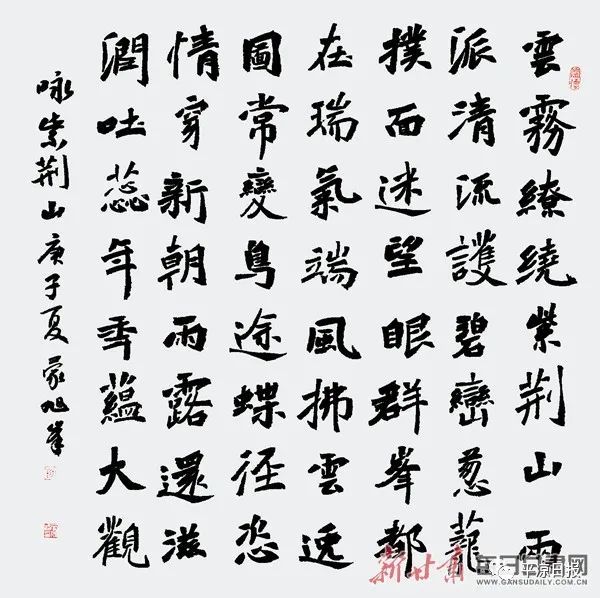 雲霧繚繞紫荆山兩
派清流護碧巒葱蘢
撲面迷望眼群峯都
在瑞氣端風拂雲逸
圖常變鳥途蝶径恣
情穿新朝雨露還滋
潤吐蕊年秊蘊大觀
咏紫荆山庚子夏蒙旭峯
新甘肃
平凉日报
WWW.GANSUDAILY.COM.CN